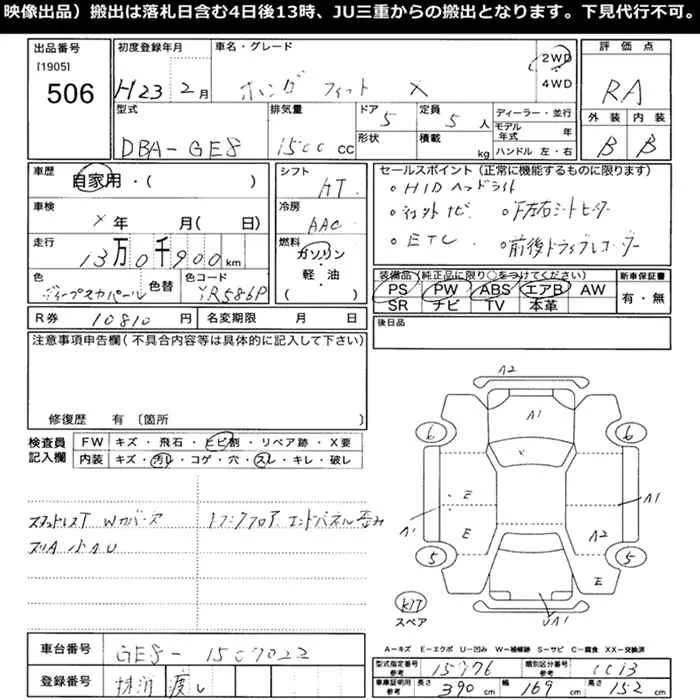 映像出品）搬出は落札日含む4日後13時、JU三重からの搬出となります。下見代行不可。
出品番号
[1905]
506
初度登録年月
H23 2月
車名・グレード
ホンダ フィット X
2WD
4WD
評価点
RA
外装 内装
B B
型式
DBA-GE8
排気量
1500 cc
ドア
5
形状
定員
5 人
積載
kg
ディーラー・並行
モデル年式 年
ハンドル 左・右
車歴
自家用・( )
車検
年 月( 日)
走行
13万0千900 km
色
ディープスカパール
色替
色コード
YR586P
シフト
AT
冷房
AAC
燃料
ガソリン
・
軽・油
( )
セールスポイント（正常に機能するものに限ります）
○HIDヘッドライト
○ナビ ○左右シートヒーター
○ETC ○前後ドライブレコーダー
装備品（純正品に限り○をつけてください）
PS PW ABS エアB AW
SR ナビ TV 本革
新車保証書
有・無
R券 10810円
名変期限 月 日
後日品
注意事項申告欄（不具合内容等は具体的に記入して下さい）
修復歴 有〔箇所
検査員記入欄
FW キズ・飛石・ヒビ割・リペア跡・X要
内装 キズ・汚レ・コゲ・穴・スレ・キレ・破レ
スタッドレスT Wカバーキズ
スリA小AU
トランクフロア エンドパネル歪み
A2
A1
6
6
A1
E
E
A1
A2
E
5
5
UA1
KIT
スペア
A-キズ E-エクボ U-凹み W-補修跡 S-サビ C-腐食 XX-交換済
車台番号
GE8-1507022
登録番号
抹消渡し
型式指定番号 参考 15776
類別区分番号 参考 0013
車庫証明用 参考 長さ 390 cm 幅 169 cm 高さ 152 cm